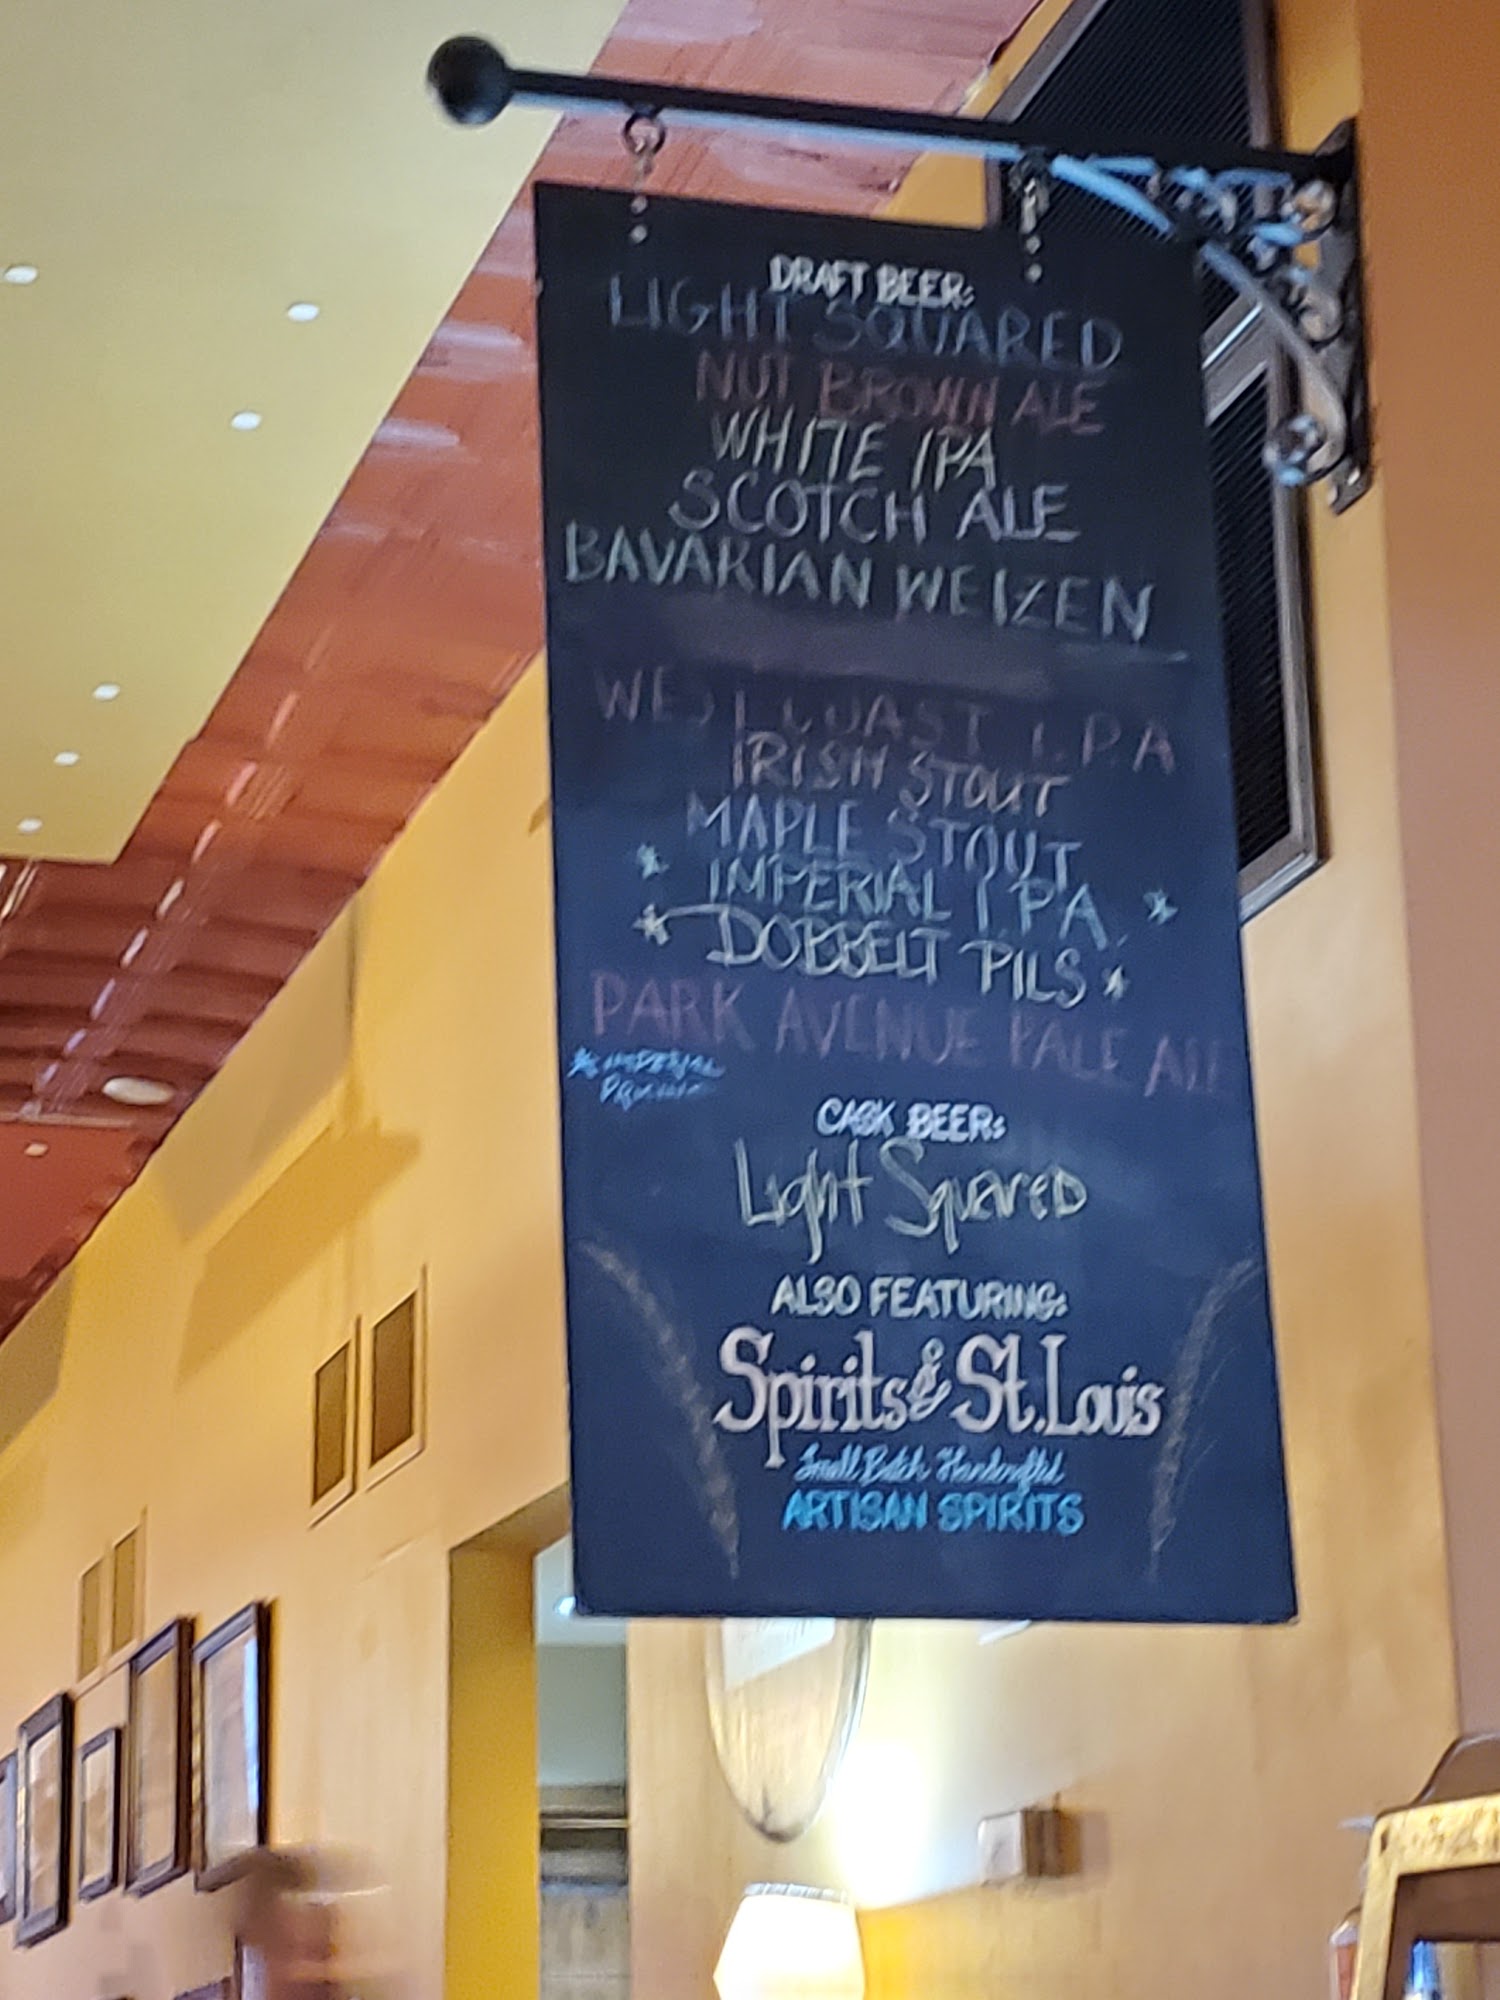 DRAFT BEER:
LIGHT SQUARED
NUT BROWN ALE
WHITE IPA
SCOTCH ALE
BAVARIAN WEIZEN
WEST COAST I.P.A
IRISH STOUT
MAPLE STOUT
* IMPERIAL I.P.A. *
* DOBBELT PILS *
PARK AVENUE PALE ALE
* IMPERIAL
CASK BEER:
Light Squared
ALSO FEATURING:
Spirits & St. Louis
Small Batch Handcrafted
ARTISAN SPIRITS